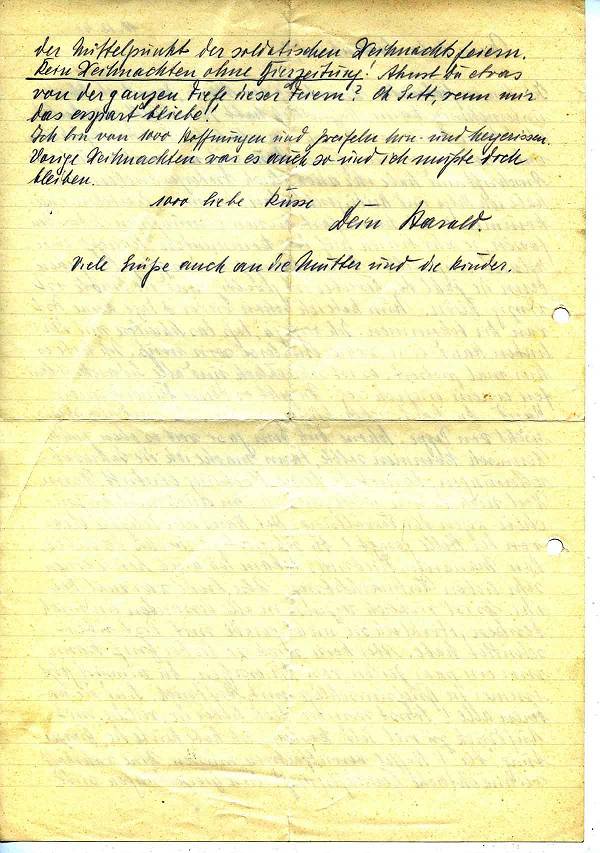 der Mittelpunkt der soldatischen Weihnachtsfeiern.
Kein Weihnachten ohne Bierzeitung! Ahnst Du etwas
von der ganzen Tiefe dieser Feiern? Oh Gott, wenn mir
das erspart bliebe!
Ich bin von 1000 Hoffnungen und Zweifeln hin- und hergerissen.
Vorige Weihnachten war es auch so und ich mußte doch
bleiben.
1000 liebe Küsse
Dein Harald.
Viele Grüße auch an die Mutter und die Kinder.